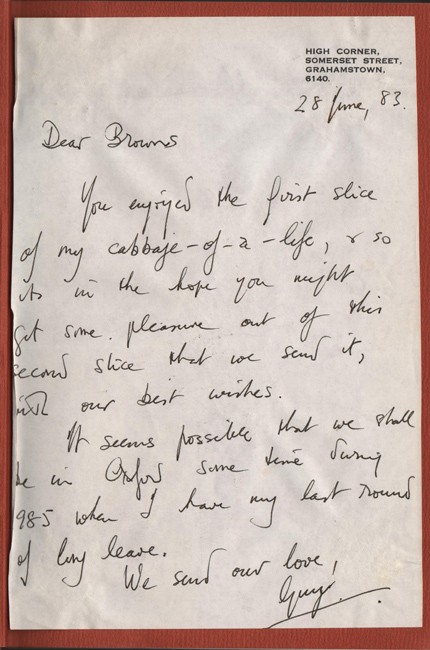 HIGH CORNER,
SOMERSET STREET,
GRAHAMSTOWN,
6140.
28 June, 83.
Dear Browns
You enjoyed the first slice
of my cabbage-of-a-life, & so
its in the hope you might
get some pleasure out of this
second slice that we send it,
with our best wishes.
It seems possible that we shall
be in Oxford some time during
1985 when I have my last round
of long leave.
We send our love,
Guy.